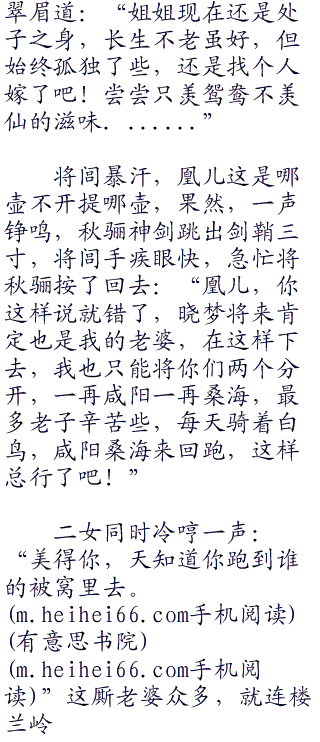 翠眉道：“姐姐现在还是处
子之身，长生不老虽好，但
始终孤独了些，还是找个人
嫁了吧！尝尝只羡鸳鸯不羡
仙的滋味．......”
将闾暴汗，凰儿这是哪
壶不开提哪壶，果然，一声
铮鸣，秋骊神剑跳出剑鞘三
寸，将闾手疾眼快，急忙将
秋骊按了回去：“凰儿，你
这样说就错了，晓梦将来肯
定也是我的老婆，在这样下
去，我也只能将你们两个分
开，一再咸阳一再桑海，最
多老子辛苦些，每天骑着白
鸟，咸阳桑海来回跑，这样
总行了吧！”
二女同时冷哼一声：
“美得你，天知道你跑到谁
的被窝里去。
(m.heihei66.com手机阅读)
(有意思书院)
(m.heihei66.com手机阅
读)”这厮老婆众多，就连楼
兰岭